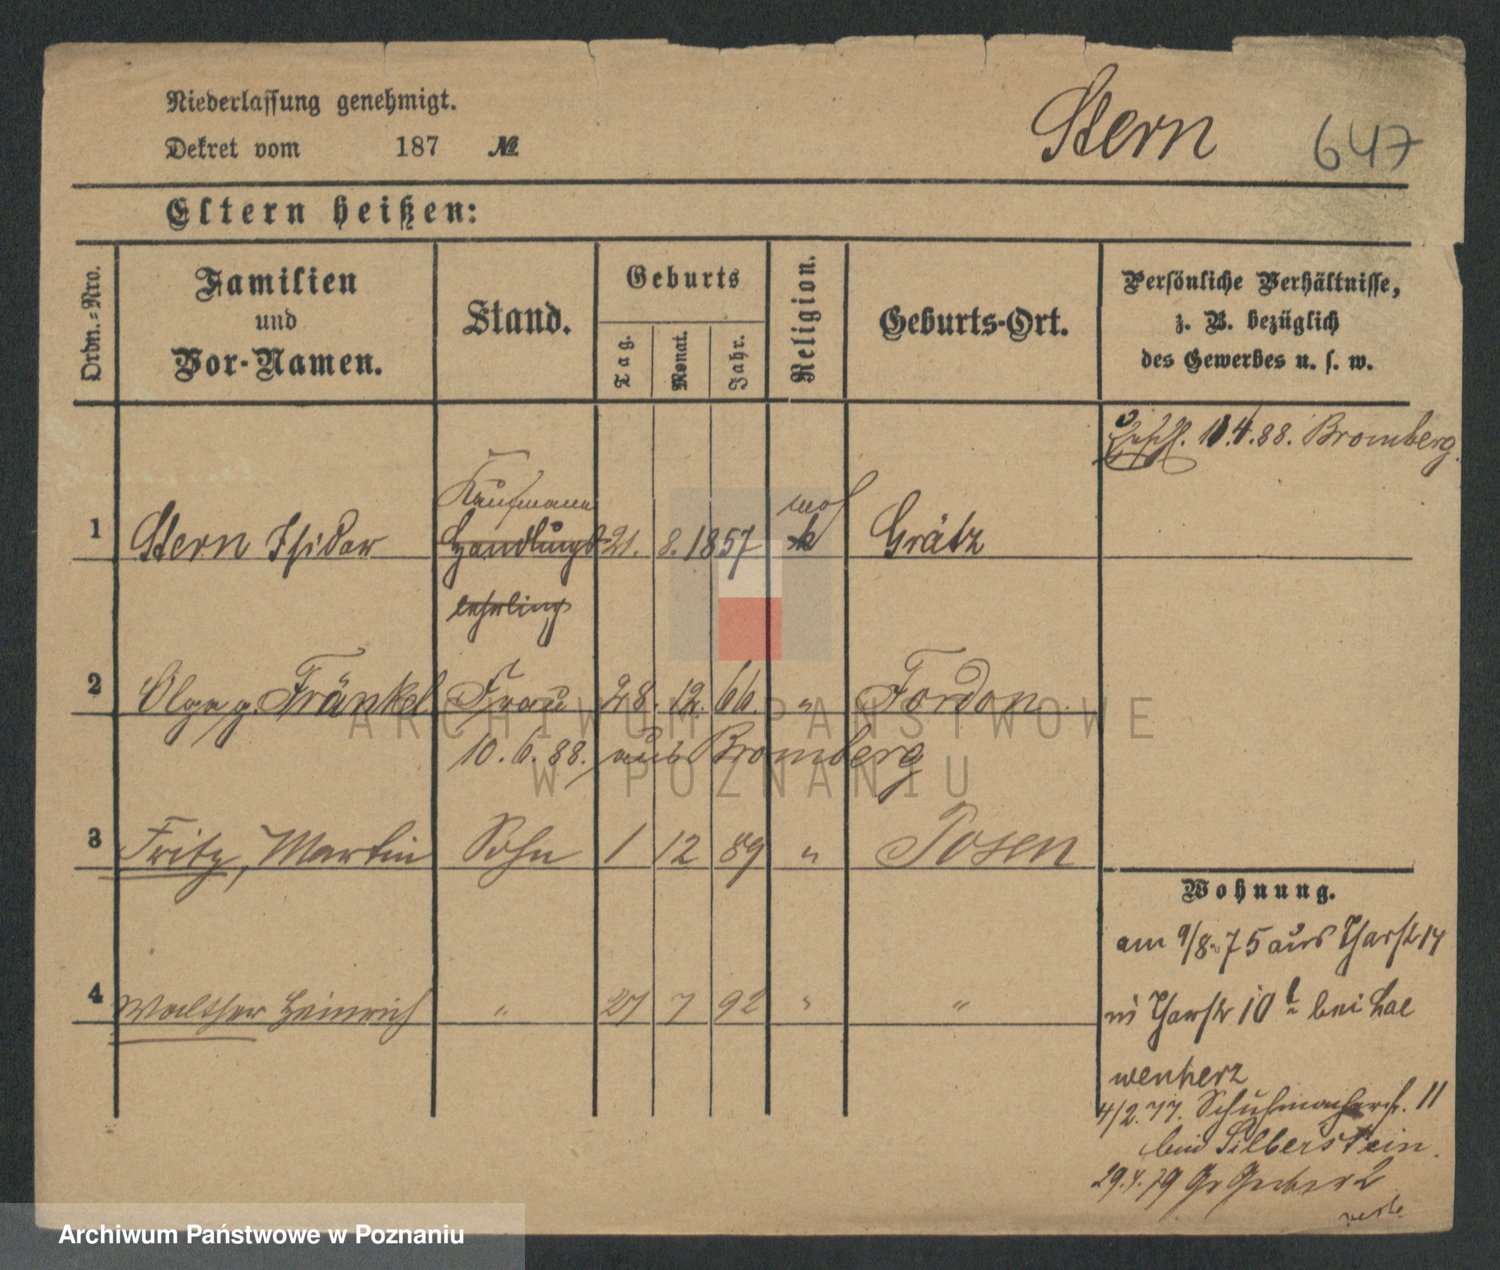 Niederlassung genehmigt.
Dekret vom 187 №
Stern
647
Eltern heißen:
Ordn.-Nro.
Familien
und
Vor-Namen.
Stand.
Geburts
Tag.
Monat.
Jahr.
Religion.
Geburts-Ort.
Persönliche Verhältnisse,
z. B. bezüglich
des Gewerbes u. s. w.
4.88. Bromberg.
Kaufmann
mos
1 Stern Isidor Handlungs 21. 8. 1857 Grätz
lehrling
2 Olga g. Fränkel Frau 28. 12. 66. " Fordon.
10. 6. 88. aus Bromberg
3 Fritz, Martin Sohn 1 12 89 " Posen
Wohnung.
am 9/8. 75 aus 14
4 Walther Heinrich " 27 7 92 " "
10 bei Loe
wenherz
4/2. 77. Schuhmacherst. 11
bei Silberstein.
29.4.79 Gr Gerber 2
ARCHIWUM PAŃSTWOWE
W POZNANIU
Archiwum Państwowe w Poznaniu